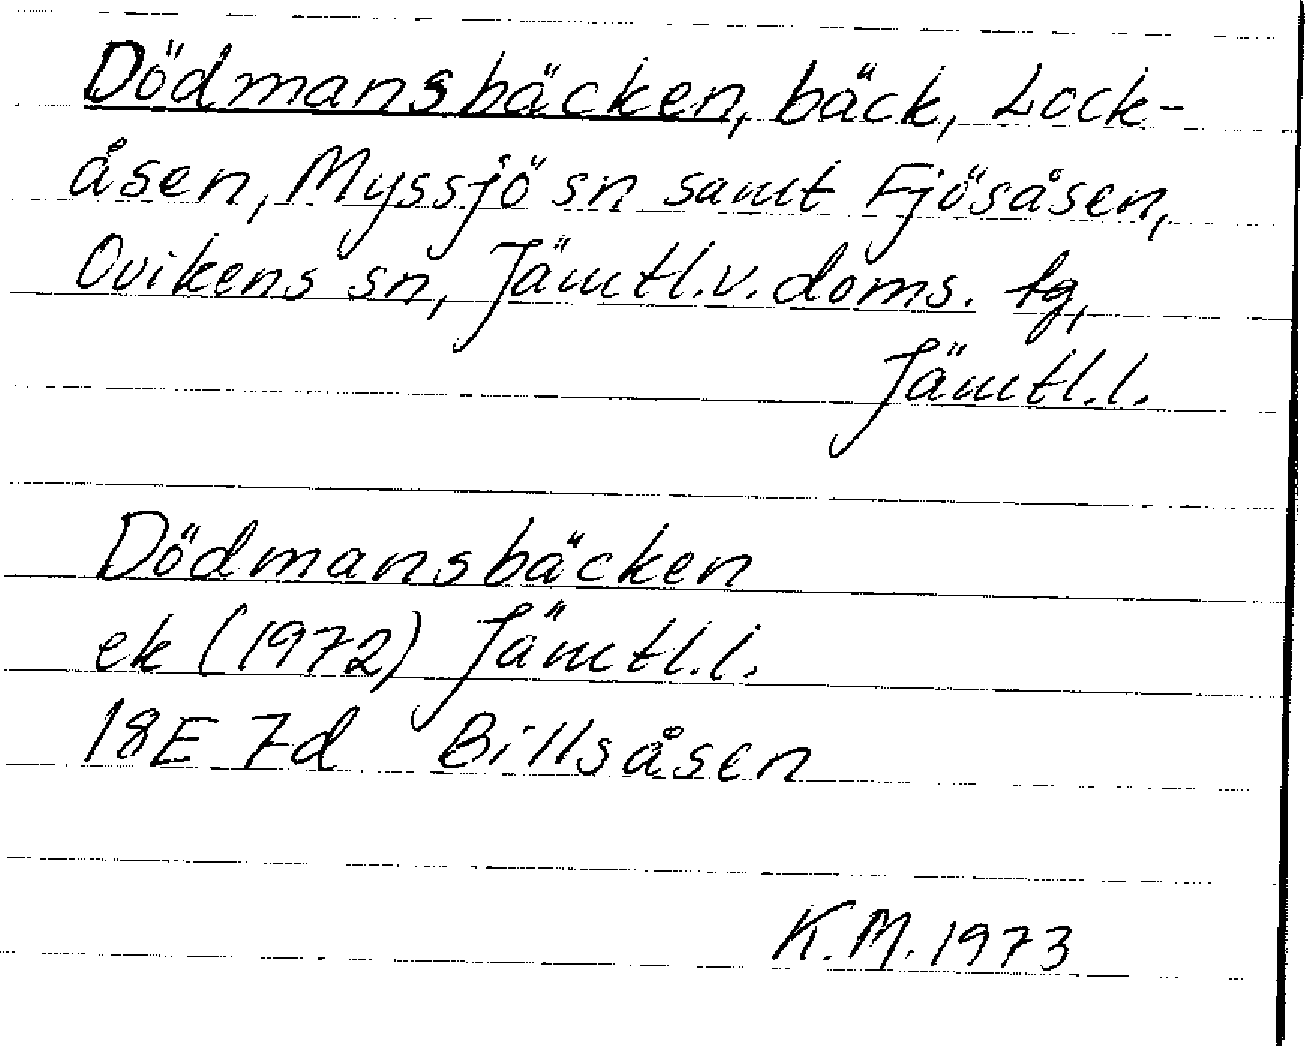 Dödmansbäcken, bäck, Lock-
åsen, Myssjö sn samt Fjösåsen,
Ovikens sn, Jämtl.v.doms. tg,
Jämtl.l.
Dödmansbäcken
ek (1972) Jämtl.l.
18E 7d Billsåsen
K.M. 1973